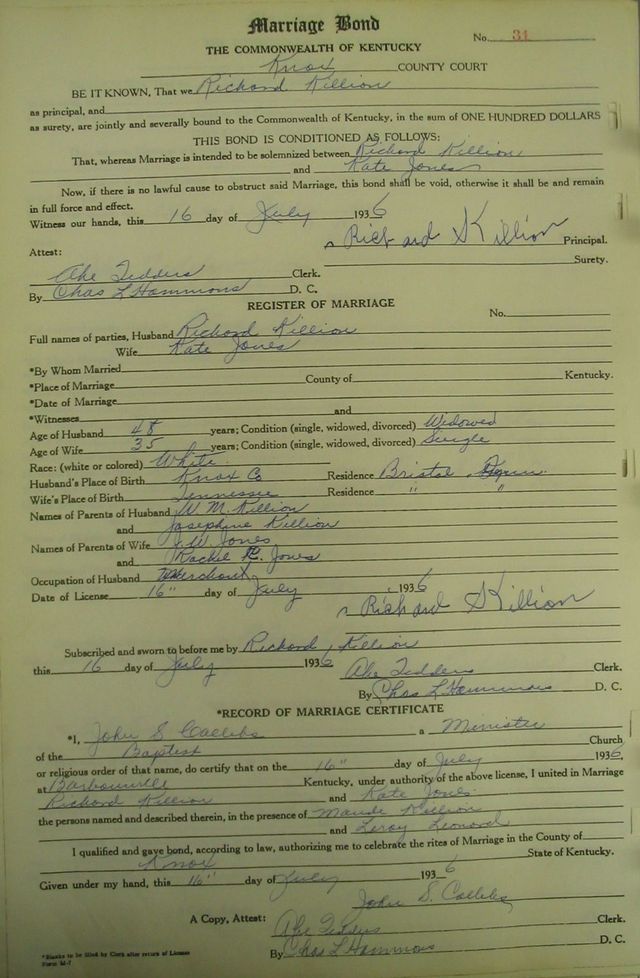 Marriage Bond
No. 31
THE COMMONWEALTH OF KENTUCKY
Knox COUNTY COURT
BE IT KNOWN, That we Richard Killion
as principal, and
as surety, are jointly and severally bound to the Commonwealth of Kentucky, in the sum of ONE HUNDRED DOLLARS
THIS BOND IS CONDITIONED AS FOLLOWS:
That, whereas Marriage is intended to be solemnized between Richard Killion
and Kate Jones
Now, if there is no lawful cause to obstruct said Marriage, this bond shall be void, otherwise it shall be and remain
in full force and effect.
Witness our hands, this 16 day of July 1936
Richard S Killion Principal.
Surety.
Attest:
Abe Tedders Clerk.
By Chas L Hammons D. C.
REGISTER OF MARRIAGE
No.
Full names of parties, Husband Richard Killion
Wife Kate Jones
*By Whom Married
*Place of Marriage County of Kentucky.
*Date of Marriage
*Witnesses and
Age of Husband 48 years; Condition (single, widowed, divorced) Widowed
Age of Wife 35 years; Condition (single, widowed, divorced) Single
Race: (white or colored) White
Husband's Place of Birth Knox Co Residence Bristol
Wife's Place of Birth Tennessee Residence " "
Names of Parents of Husband W. M. Killion
and Josephine Killion
Names of Parents of Wife J. W. Jones
and Rachel R. Jones
Occupation of Husband Merchant
Date of License 16" day of July 1936
Richard S Killion
Subscribed and sworn to before me by Richard Killion
this 16 day of July 1936
Abe Tedders Clerk.
By Chas L Hammons D. C.
*RECORD OF MARRIAGE CERTIFICATE
*I, John S Callebs a Minister
of the Baptist Church
or religious order of that name, do certify that on the 16" day of July 1936,
at Barbourville Kentucky, under authority of the above license, I united in Marriage
Richard Killion and Kate Jones
the persons named and described therein, in the presence of Maude Killion
and Leroy Leonard
I qualified and gave bond, according to law, authorizing me to celebrate the rites of Marriage in the County of
Knox State of Kentucky.
Given under my hand, this 16" day of July 1936
John S. Callebs
A Copy, Attest: Abe Tedders Clerk.
By Chas L Hammons D. C.
*Blanks to be filled by Clerk after return of License
Form M-7